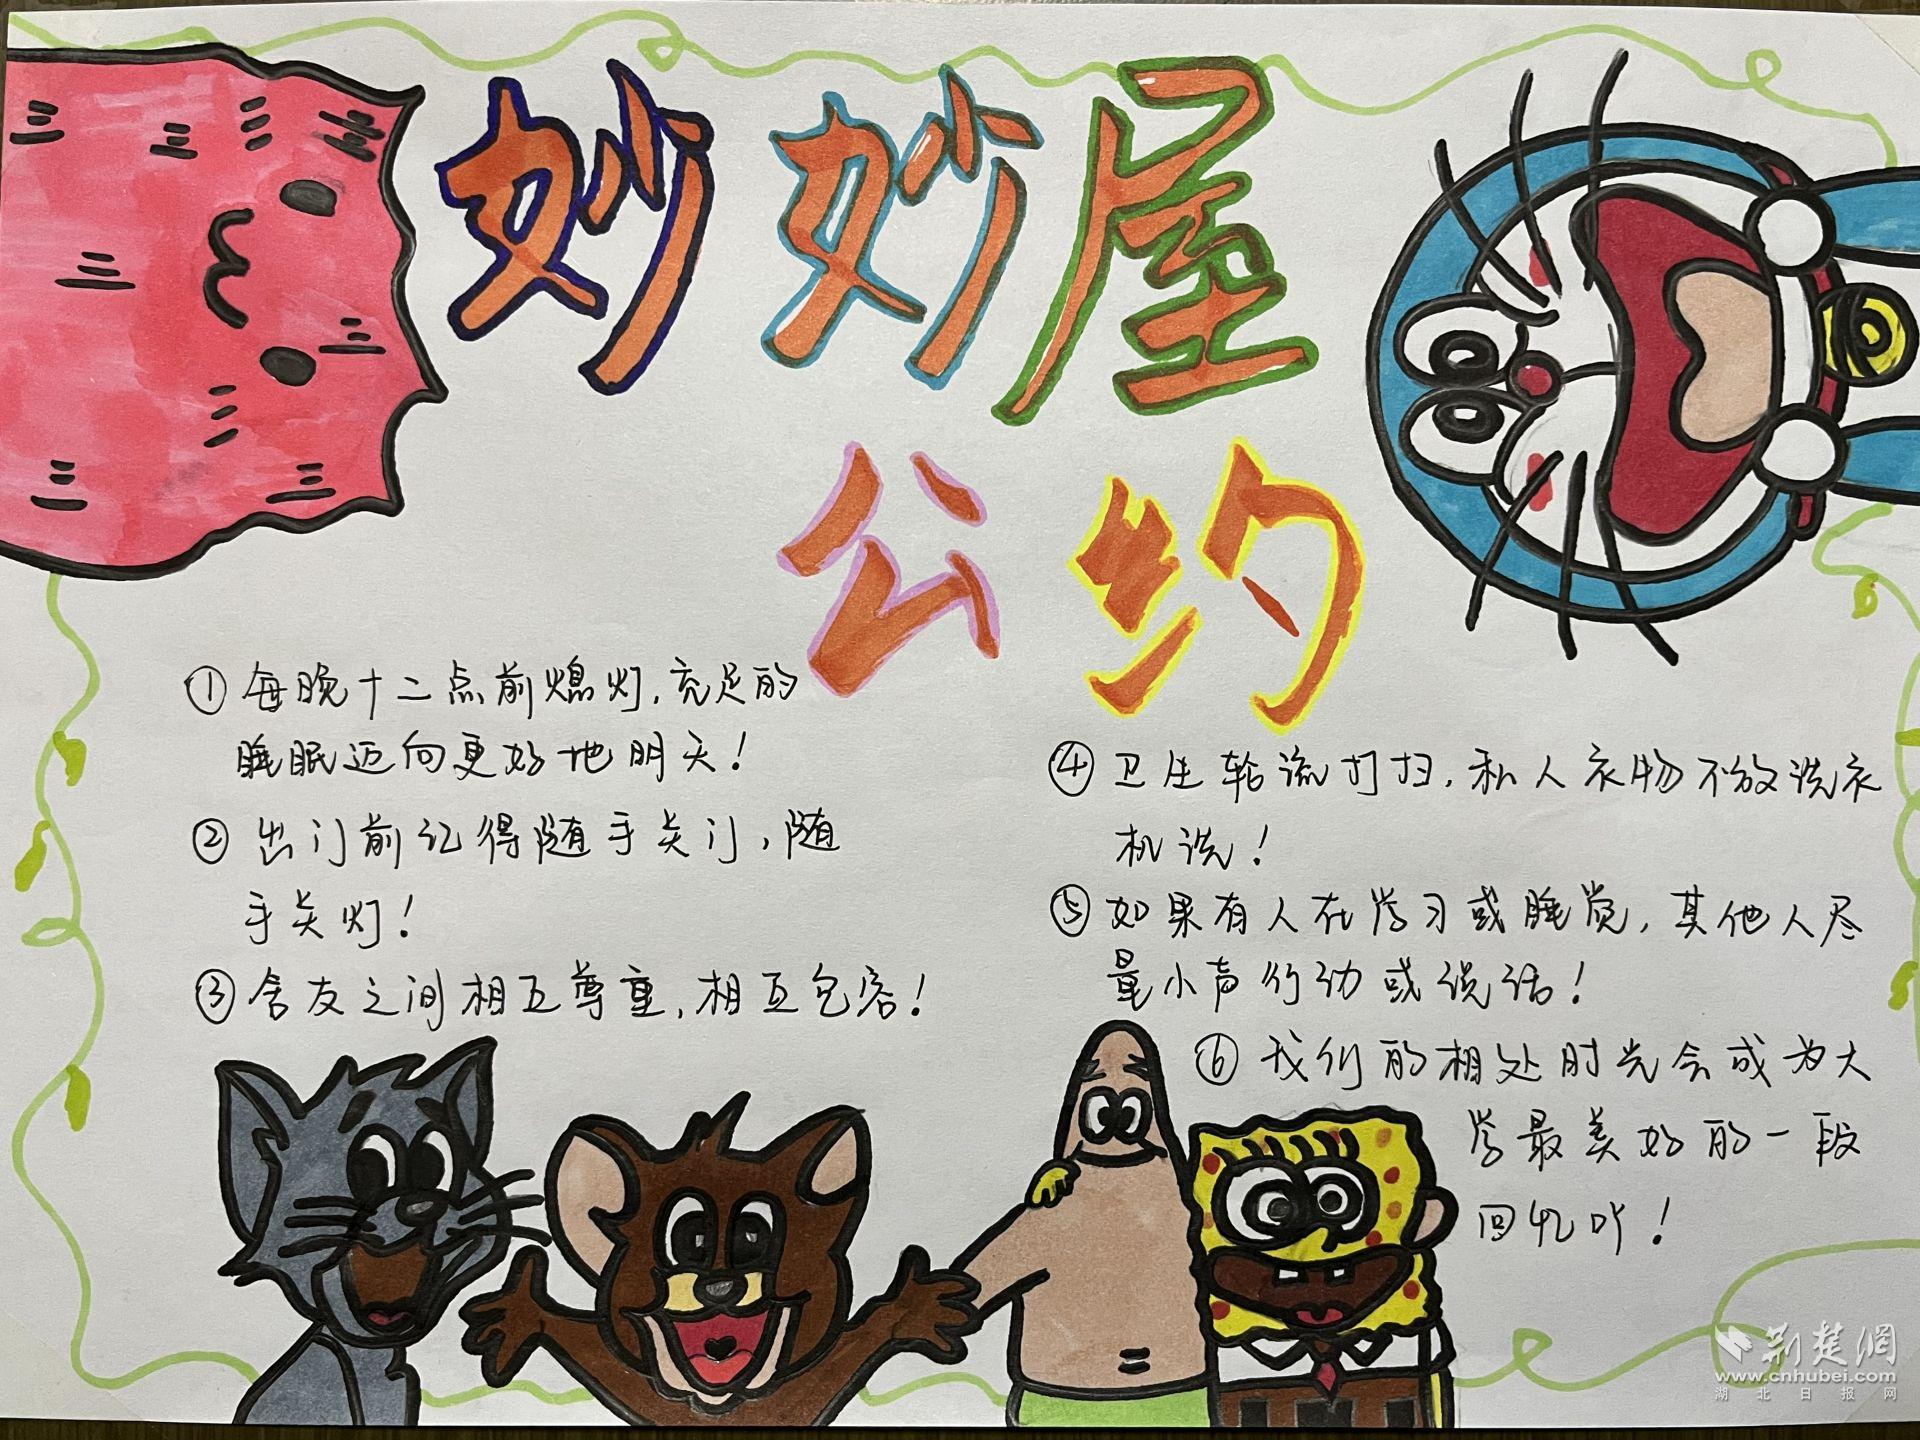 妙妙屋
公约
①每晚十二点前熄灯,充足的
睡眠迈向更好地明天!
②出门前记得随手关门,随
手关灯!
③舍友之间相互尊重,相互包容!
④卫生轮流打扫,私人衣物不放洗衣
机洗!
⑤如果有人在学习或睡觉,其他人尽
量小声行动或说话!
⑥我们的相处时光会成为大
学最美好的一段
回忆吖!
荆楚网
www.cnhubei.com
湖北日报网